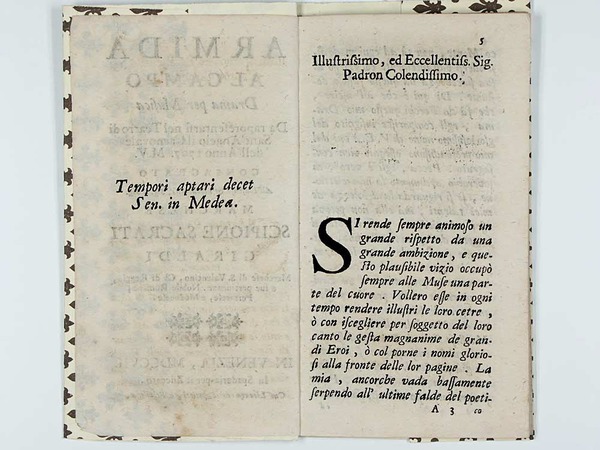 Tempori aptari decet
Sen. in Medea.
5
Illuſtriſſimo, ed Eccellentiſs. Sig.
Padron Colendiſſimo.
SI rende ſempre animoſo un
grande riſpetto da una
grande ambizione, e que-
ſto plauſibile vizio occupò
ſempre alle Muſe una par-
te del cuore. Vollero eſſe in ogni
tempo rendere illuſtri le loro cetre,
ò con iſcegliere per ſoggetto del loro
canto le geſta magnanime de gran-
di Eroi, ò col porne i nomi glorio-
ſi alla fronte delle lor pagine. La
mia, ancorche vada baſſamente
ſerpendo all' ultime falde del poeti-
A 3 co